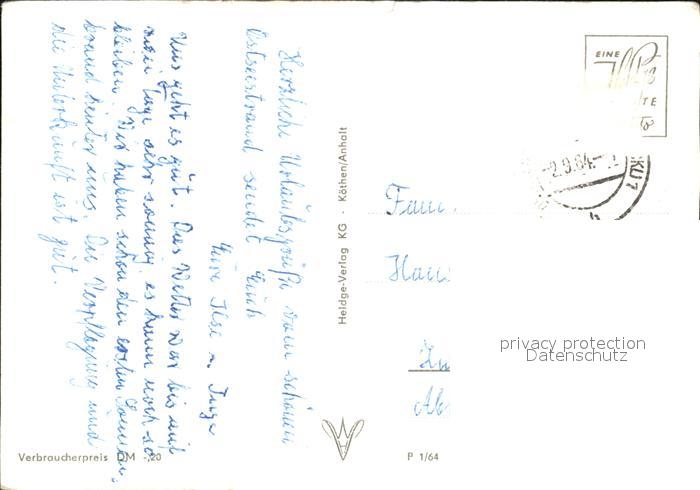 Herzliche Urlaubsgrüße vom schönen
Ostseestrand sendet Euch
Eure Ilse u. Inge
Uns geht es gut. Das Wetter war bis auf
zwei Tage sehr sonnig, es kann noch so
bleiben. Wir haben schon den ersten Sonnen-
brand hinter uns. Die Verpflegung und
die Unterkunft ist gut.
Heldge-Verlag KG · Köthen/Anhalt
EINE
-2.9.64.-
Fam.
privacy protection
Datenschutz
Verbraucherpreis DM -,20
P 1/64